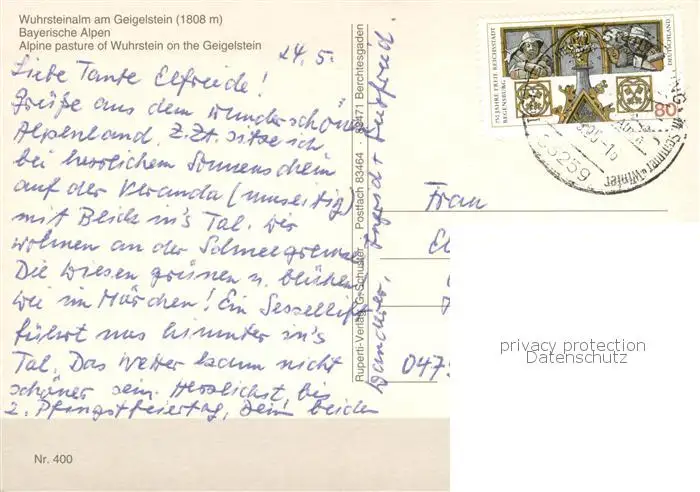 Wuhrsteinalm am Geigelstein (1808 m)
Bayerische Alpen
Alpine pasture of Wuhrstein on the Geigelstein
24.5.
Liebe Tante Elfriede!
Grüße aus dem wunderschönen
Alpenland. Z.Zt. sitze ich
bei herrlichem Sonnenschein
auf der Veranda
mit Blick in's Tal. Wir
wohnen an der Schneegrenze
Die Wiesen grünen u. blühen
wie im Märchen! Ein Sessellift
führt uns hinunter in's
Tal. Das Wetter kann nicht
schöner sein. Herzlichst, bis
2. Pfingstfeiertag, Deine beiden
Wanderer,
Ruperti-Verlag G. Schuster · Postfach 83464 · 83471 Berchtesgaden
750 JAHRE FREIE REICHSSTADT
REGENSBURG
DEUTSCHLAND
80
83259
Sommer + Winter
Frau
El
047
privacy protection
Datenschutz
Nr. 400